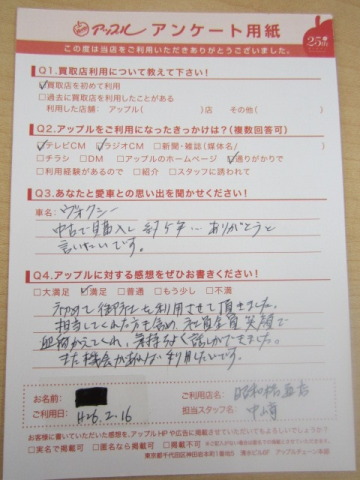 アップル アンケート用紙
この度は当店をご利用いただきありがとうございました。
25th
Q1.買取店利用について教えて下さい!
☑買取店を初めて利用
□過去に買取店を利用したことがある
利用した店舗: アップル( )店 その他( )
Q2.アップルをご利用になったきっかけは?(複数回答可)
☑テレビCM ☑ラジオCM □新聞・雑誌(媒体名/ )
□チラシ □DM □アップルのホームページ ☑通りがかりで
□利用経験があるので □紹介 □スタッフに誘われて
Q3.あなたと愛車との思い出を聞かせください!
車名: ヴォクシー
中古で購入し 約5年… ありがとうと
言いたいです。
Q4.アップルに対する感想をぜひお書きください!
□大満足 ☑満足 □普通 □もう少し □不満
初めて御社を利用させて頂きました。
担当してくれた方も含め、社員全員 笑顔で
出迎えてくれ、気持ちよく話しができました。
また機会があれば利用したいです。
お名前:
ご利用日: H26.2.16
ご利用店名: 昭和橋通店
担当スタッフ名:
お客様に書いていただいた感想を、アップルHPや広告に掲載させていただいてもよろしいでしょうか?
□実名で掲載可 □匿名なら掲載可 □掲載不可
東京都千代田区神田岩本町1番地5 清水ビル6F アップルチェーン本部